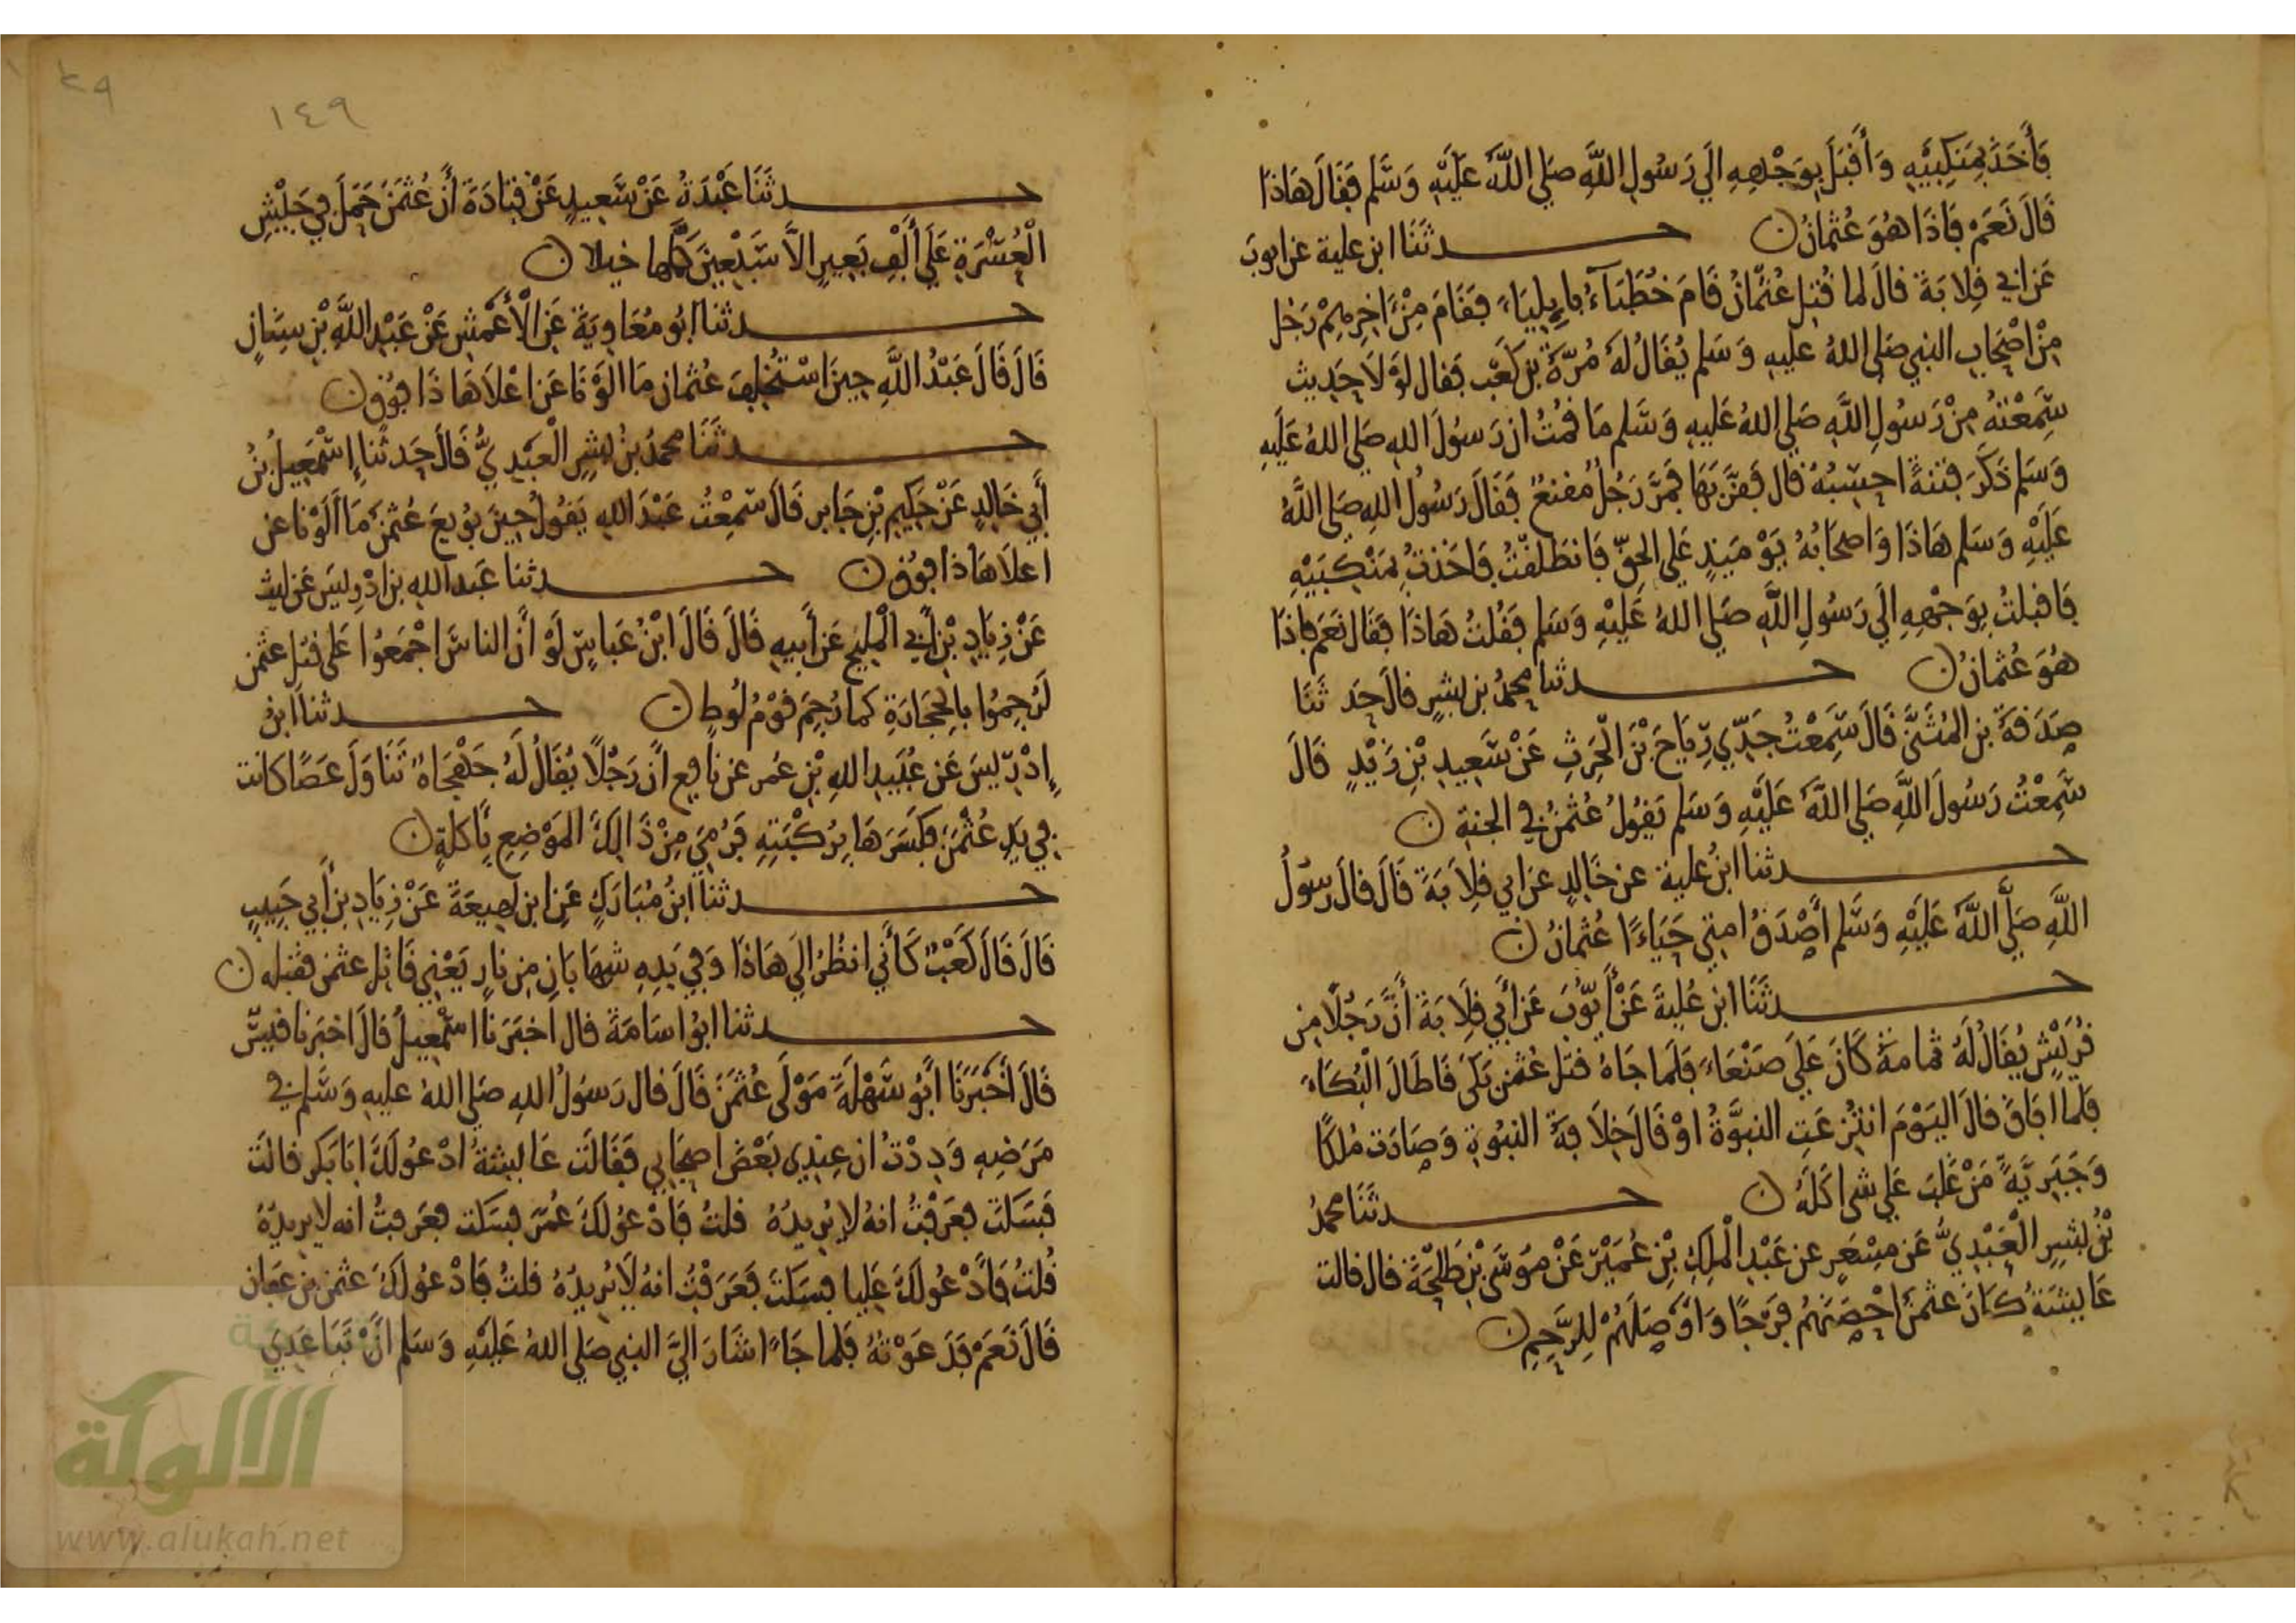 فَأَخَذَ بِمَنكِبَيْهِ وَأَقْبَلَ بِوَجْهِهِ إلَي رَسُولِ اللَّهِ صَلي اللَّهُ عَلَيْهِ وَسَّلم فَقَالَ هَاذَا
قَالَ نَعَمْ فَاذَا هُوَ عُثمَانُ ں حــدثَنَا ابن علية عن ايوبَ
عَن ابي قِلابَة قالَ لما قُتِل عُثْمَانُ قَامَ خُطَبَآءُ بإيلِيَاء فقَامَ مِنْ ءاخِرِهِمْ رَجُل
مِنْ اصْحَابِ النبي صَلي اللهُ عليهِ وَسَلم يُقَالُ لهُ مُرَّةُ بن كَعْب فقال لوْلَا حَدِيث
سَمِعْتهُ مِنْ رَسُولِ اللَّهِ صَلي اللهُ عَليهِ وَسَلم مَا قمْتُ ان رَسُولَ اللهِ صَلي اللهُ عَلَيهِ
وَسَلم ذَكَرَ فتنةً احسِبُهُ قال فَقرَّبَهَا فَمرَّ رَجُل مُقنعٌ فَقَالَ رَسُولُ اللهِ صَلي اللهُ
عَلَيْهِ وَسَلم هَاذَا وَاصحَابُهُ يَوْمَيِذٍ عَلي الحقّ فَانطَلقْتُ فَاخَذتُ بمَنْكِبَيْهِ
فَاقبلتُ بِوَجْهِهِ إلَي رَسُولِ اللَّهِ صَلي اللهُ عَلَيْهِ وَسَلم فَقُلتُ هَاذَا فقَال نَعَم فاذَا
هُوَ عُثمَانُ ں حــدثنا محمدُ بن بشرٍ قالَ حَدثَنَا
صَدَقةُ بن المُثَنَّي قَالَ سَمِعْتُ جَدِّي رِيَاحَ بْنَ الْحَرِثِ عَنْ سَعِيدِ بْنِ زَيْدٍ قَالَ
سَمِعْتُ رَسُولَ اللَّهِ صَلي اللَّهُ عَلَيْهِ وَسَلم يَقُولُ عُثْمَنُ في الجنةِ ں
حــدثنا ابنُ علية عن خَالدٍ عن ابي قلابَةَ قَالَ قالَ رسُولُ
اللَّهِ صَلَّي اللَّهُ عَلَيْهِ وَسَّلم أَصْدَقُ امتِي حَيَاءًا عُثمانُ ں
حــدثَنَا ابن عُليةَ عَنْ أَيّوُبَ عَن أَبي قِلَابَةَ أَنَّ رَجُلًا مِن
قُرَيْشٍ يُقَالُ لَهُ ثمامةُ كَانَ عَلَي صَنْعَاءَ فَلَما جَاهُ قتل عُثمن بَكَى فَاطَالَ الْبُكَاءَ
فَلَما افَاقَ قالَ اليَوْمَ انتُزعَتِ النبوَّةُ اوْ قَالَ خِلَافةُ النبُوةِ وَصَارَت مُلكًا
وَجَبَرِيَّةً مَنْ غَلَبَ عَلي شىٍ اكَلَهُ ں حــدثَنَا محمدُ
بْنُ بشرٍ الْعَبْدِيُّ عَن مِسْعَرٍ عن عَبْدِ الْمَلِكِ بْنِ عُمَيْرٍ عَنْ مُوسَي بْنِ طَلْحَةَ قال قالت
عَايشَةُ كَانَ عثمَنُ احْصَنَهُمْ فَرْجًا وَاوْصَلَهُمْ لِلرَّحِمِ ں
٢٩
١٤٩
حــدثَنَا عَبْدَةُ عَنْ سَعِيدٍ عَنْ قتَادَةَ أَن عُثمَنَ حَمَلَ في جَيْشِ
الْعُسْرَةِ عَلَي أَلْفِ بَعِيرٍ الاَّ سَبْعِينَ كَملها خيلا ں
حــدثنا ابُو مُعَاويَةَ عَنِ الْأَعْمشِ عَنْ عَبْدِ اللَّهِ بْنِ سِنَانٍ
قَالَ قَالَ عَبْدُ اللَّهِ حِينَ اسْتُخْلِفَ عُثمان مَا الَوْنَا عَن اعْلَاهَا ذَا فوْق ں
حــدثَنَا محمدُ بْنُ بِشْرٍ الْعَبْدِيُّ قَالَ حَدثَنَا إسْمَعِيلُ بْنُ
أَبي خَالدٍ عَنْ حَكِيمِ بْنِ جَابر قَالَ سَمِعْتُ عَبْدَ اللهِ يَقُولُ حِينَ بُويعَ عُثمَنُ مَا أَلَوْنا عن
اعلَاهَا ذا فوْق ں حــدثنا عَبد اللهِ بن ادْرِيسَ عَن ليث
عَنْ زِيَادِ بْنِ أَبي الْمليح عَن أَبيهِ قَالَ قَالَ ابْنُ عَباسٍ لَوْ أَنَّ الناسَ اجْمَعُوا عَلى قتل عثمن
لَرُجِمُوا بالحجَارَةِ كمَا رُجِمَ قَوْمُ لُوطٍ ں حــدثنا ابنُ
إدْرِيسَ عَن عُبَيدِ اللهِ بْنِ عُمر عن نافعٍ أَنَّ رَجُلًا يُقَالُ لَهُ جَهْجَاهٌ تَنَاوَلَ عَصًا كانت
في يَدِ عُثْمَنَ فكَسَرَهَا بِرُكْبَتِهِ فَرُمِيَ مِنْ ذَالِكَ المَوْضِعِ بِأَكلَةٍ ں
حــدثنا ابنُ مُبَارَكٍ عَنِ ابن لهِيعَةَ عَنْ زِيَادِ بنِ أَبي حَبِيبٍ
قَالَ قَالَ كَعْبٌ كَأَني انظُرُ إلَي هَاذَا وَفي يَدِهِ شهَابَانِ مِن نارٍ يَعْنِي قَاتِل عثمن فقتله ں
حــدثنا ابُو اسَامَةَ قال اخبَرَنَا اسْمعِيلُ قالَ اخبَرنا قيسٌ
قَالَ أَخْبَرَنَا أَبُو سَهْلَةَ مَوْلَي عُثمَنَ قَالَ قال رَسُولُ اللهِ صَلي اللهُ عليهِ وَسَّلم في
مَرَضِهِ وَدِدْتُ ان عِندِي بَعْضَ اصحَابي فَقَالَت عَايشةُ ادْعُو لَكَ ابَا بَكر قالتْ
فَسَكَتَ فعَرَفْتُ انهُ لا يُرِيدُهُ قلتُ فَادْعُو لكَ عُمَرَ فسَكت فعَرَفتُ انه لا يريدُهُ
قُلتُ فَأَدْعُو لَكَ عَليا فسَكَت فَعَرَفْتُ انهُ لَا يُرِيدُهُ قلتُ فَادْعُو لَكَ عثمَن بن عَفان
قَالَ نَعَمْ فَدَعَوْتُهُ فَلما جَاءَ اشَارَ اليَّ النبي صَلي اللهُ عَلَيْهِ وَسَلم أَنْ تَبَاعَدِي
الألوكة
www.alukah.net